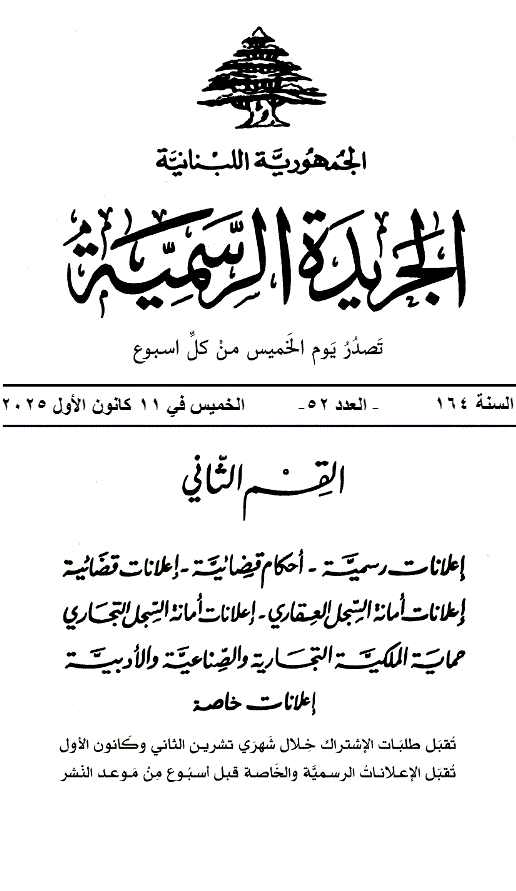 الجُمهُوريَّة اللبْنَانيَّة
الجَريدَة الرَّسمِيَّة
تَصدُرُ يَوم الخَميس منْ كلِّ اسبوع
السنة ١٦٤ - العدد ٥٢- الخميس في ١١ كانون الأول ٢٠٢٥
القِسْم الثَّاني
إعلانات رسميَّة - أحكام قضائيَّة - إعلانات قضائية
إعلانات أمانة السِّجل العِقاري - إعلانات أمانة السِّجل التجَاري
حماية الملكيَّة التجَارية والصِّناعيَّة والأدبيَّة
إعلانات خاصة
تُقبَل طلبَات الإشتراك خِلال شَهرَي تشرين الثاني وكَانون الأول
تُقبَل الإعلانات الرسميَّة والخَاصة قبل أسبُوع مِنْ مَوعد النَشر